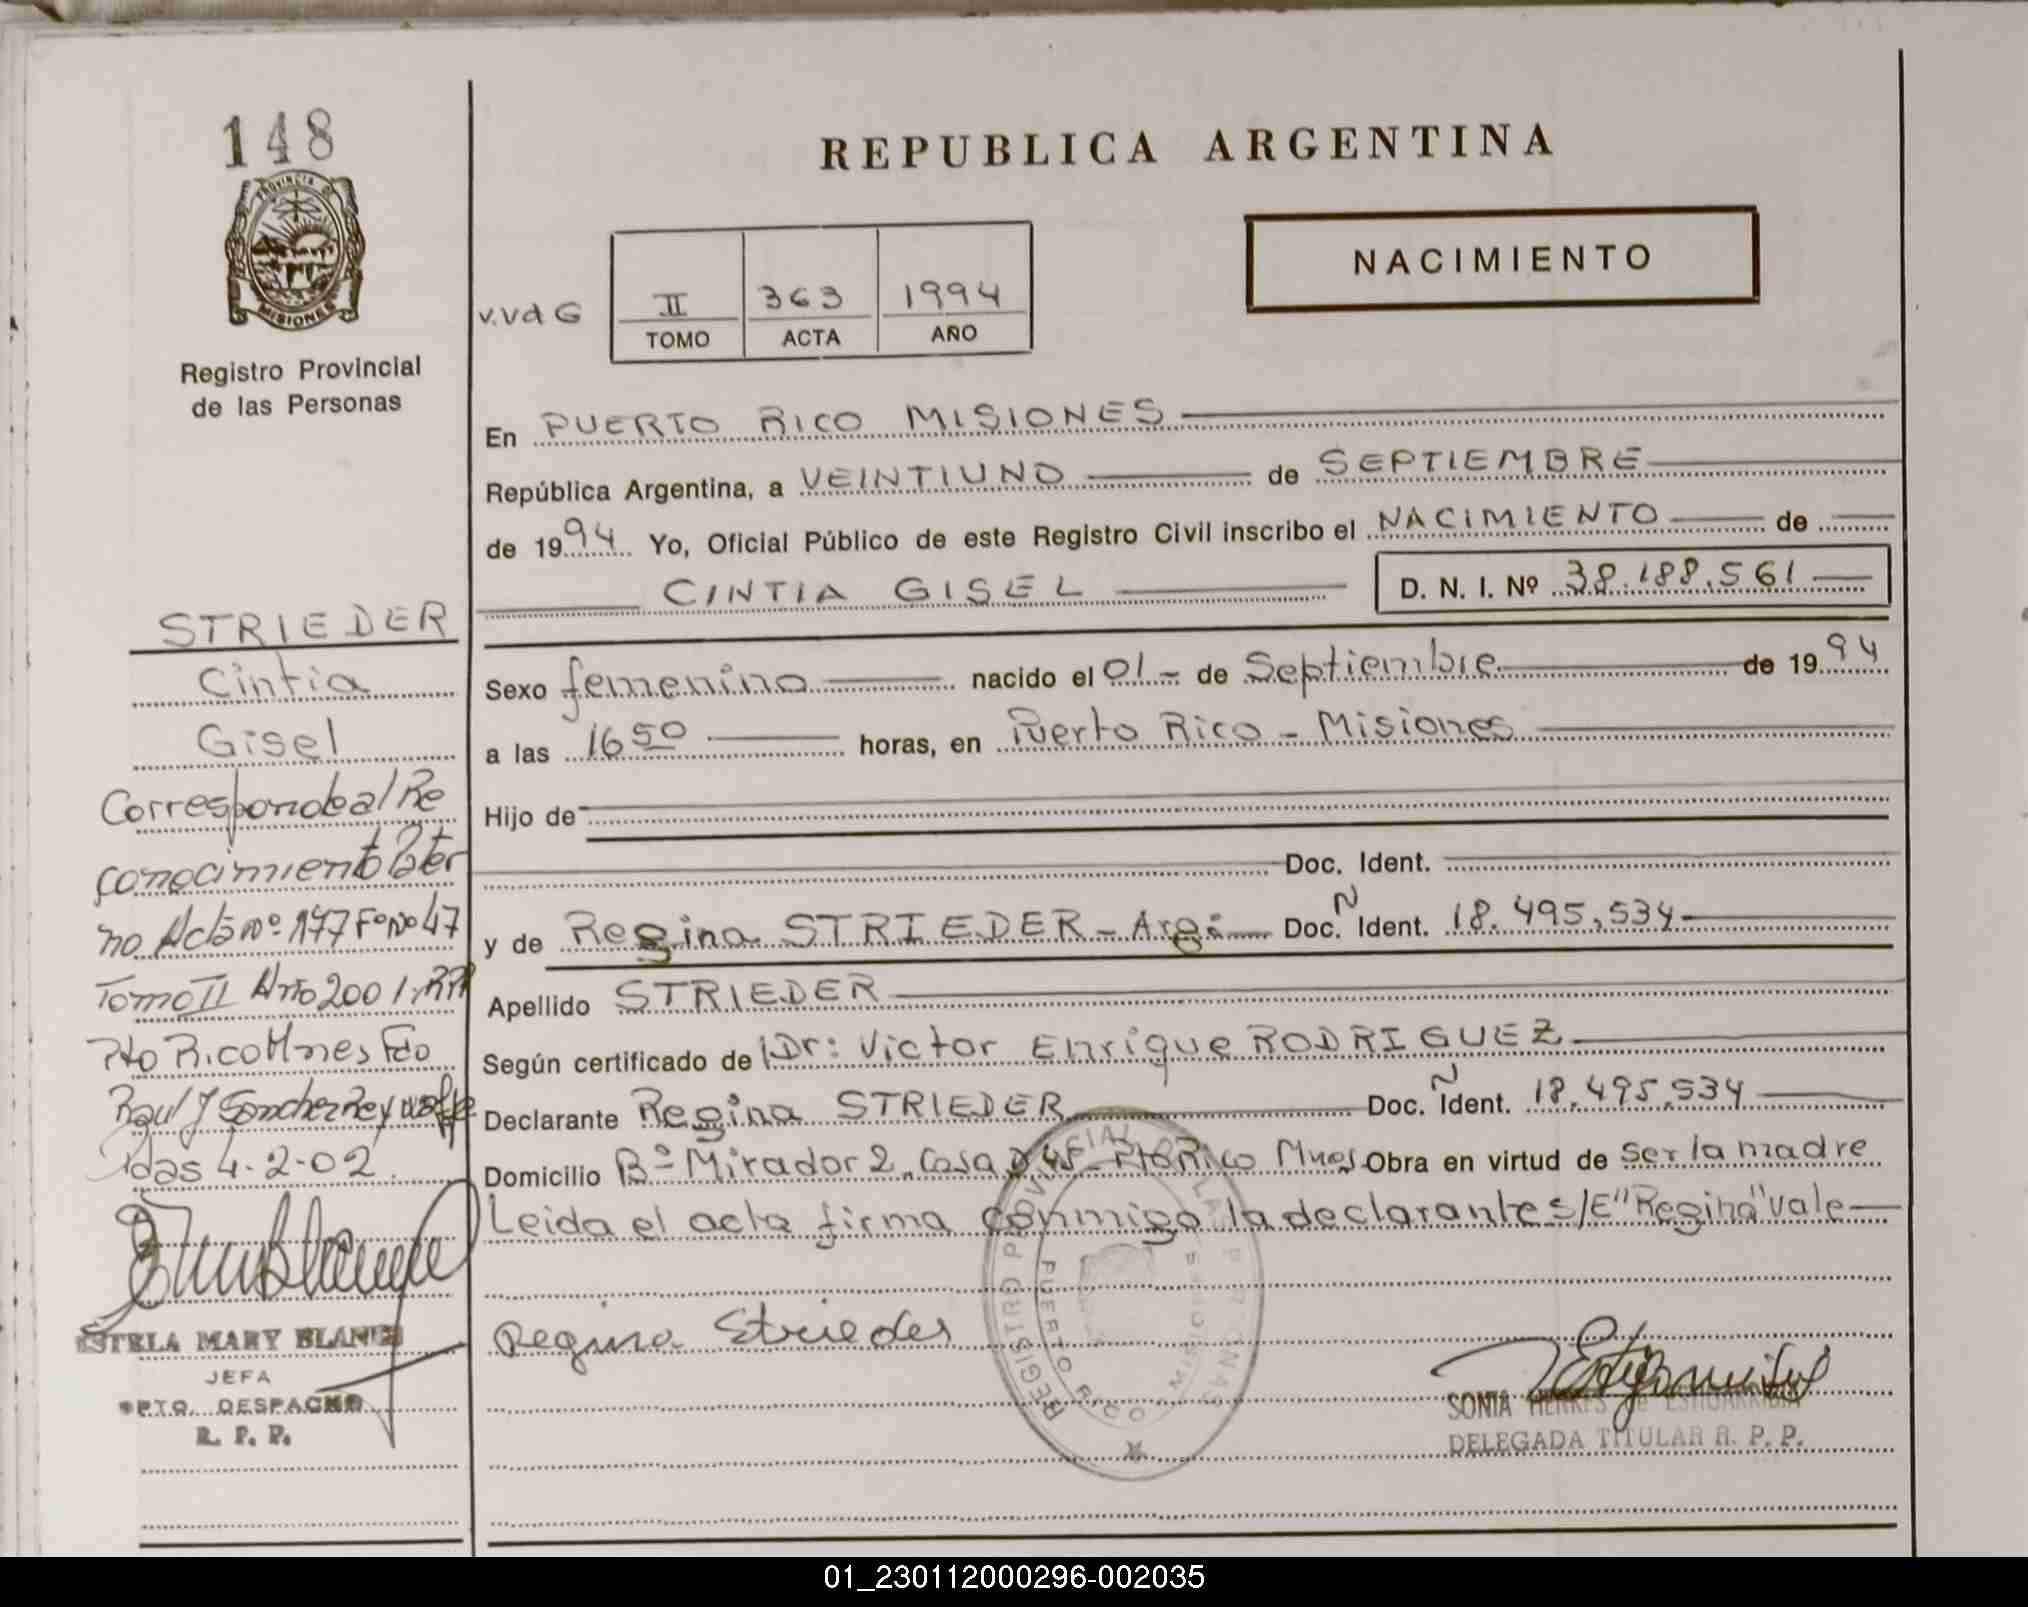 148
PROVINCIA D
MISIONES
Registro Provincial
de las Personas
STRIEDER
Cintia
Gisel
Corresponde al Re
conocimiento Pater
no Acta nº 177 Fº Nº 47
Tomo II Año 2001. RPP
Pto Rico Mnes Fdo
Raul J Sancher Rey
Pdas 4-2-02
ESTELA MARY BLANCO
JEFA
DPTO. DESPACHO
R. P. P.
REPUBLICA ARGENTINA
NACIMIENTO
v.vd G
II 363 1994
TOMO ACTA AÑO
En PUERTO RICO MISIONES
República Argentina, a VEINTIUNO de SEPTIEMBRE
de 1994 Yo, Oficial Público de este Registro Civil inscribo el NACIMIENTO de
CINTIA GISEL D. N. I. Nº 38.188.561
Sexo femenino nacido el 01- de Septiembre de 1994
a las 16 50 horas, en Puerto Rico - Misiones
Hijo de
Doc. Ident.
y de Regina STRIEDER - Arg: Doc. N Ident. 18.495.534
Apellido STRIEDER
Según certificado de Dr: Victor Enrique RODRIGUEZ
Declarante Regina STRIEDER Doc. Ñ Ident. 18.495.534
Domicilio Bº Mirador 2, Casa D 45 - Pto Rico Mnes. Obra en virtud de ser la madre
Leida el acta firma conmigo la declarante S/E "Regina" vale
Regina Strieder
REGISTRO PROVINCIAL DE LAS PERSONAS
PUERTO RICO MISIONES
SONIA HENKES de ESTIGARRIBIA
DELEGADA TITULAR R. P. P.
01_230112000296-002035